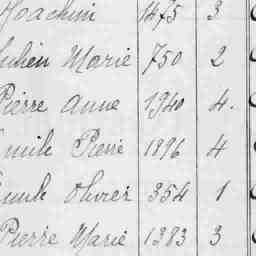 Joachim 1475 3
Julien Marie 750 2
Pierre Anne 1940 4.
Emile Pierre 1896 4
Emile Olivier 354 1
Pierre Marie 1383 3